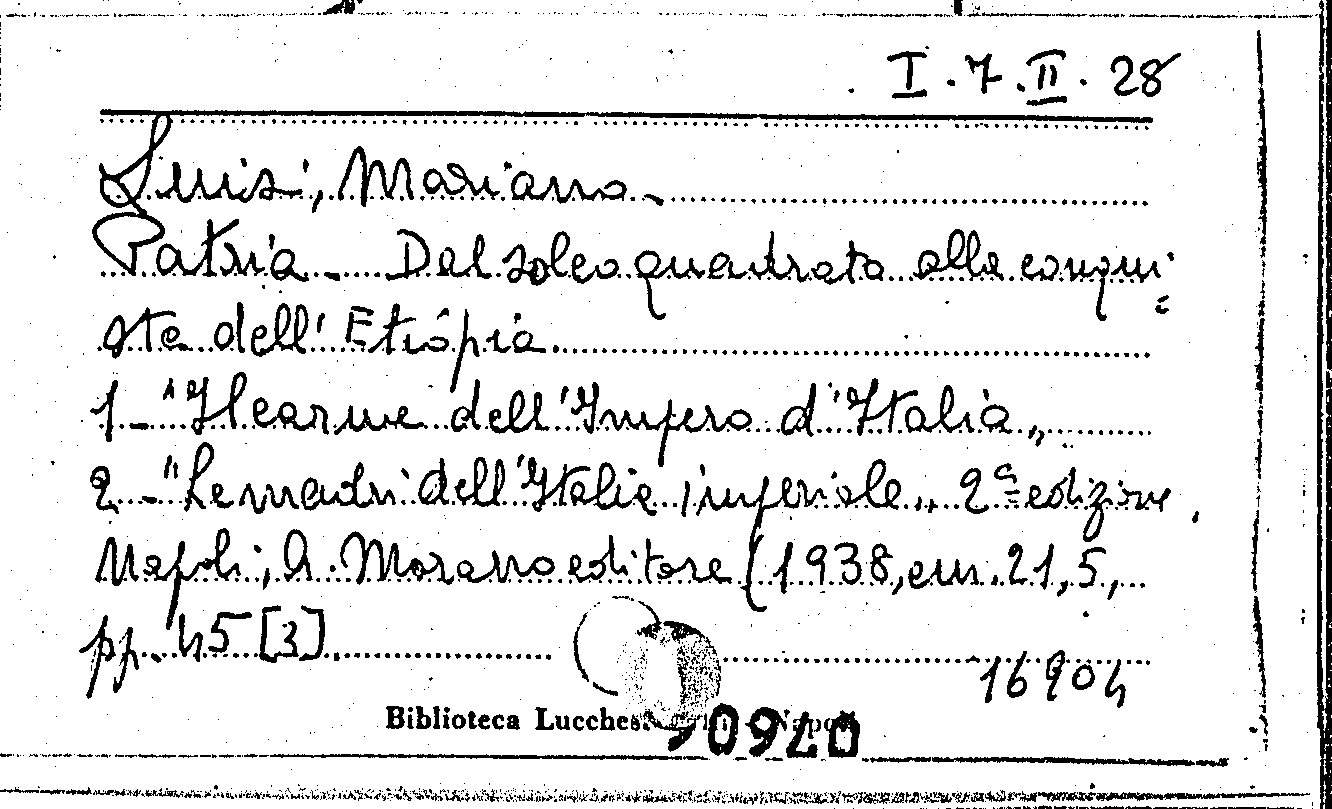 I.7.II.28
Luisi, Mariano.
Patria. Dal solco quadrato alla conqui=
sta dell'Etiopia.
1-"Il carme dell'Impero d'Italia„
2-"Le madri dell'Italia imperiale„ 2ª edizione,
Napoli, A. Morano editore (1938, cm. 21,5,
pp. 45 [3].
16904
Biblioteca Lucches